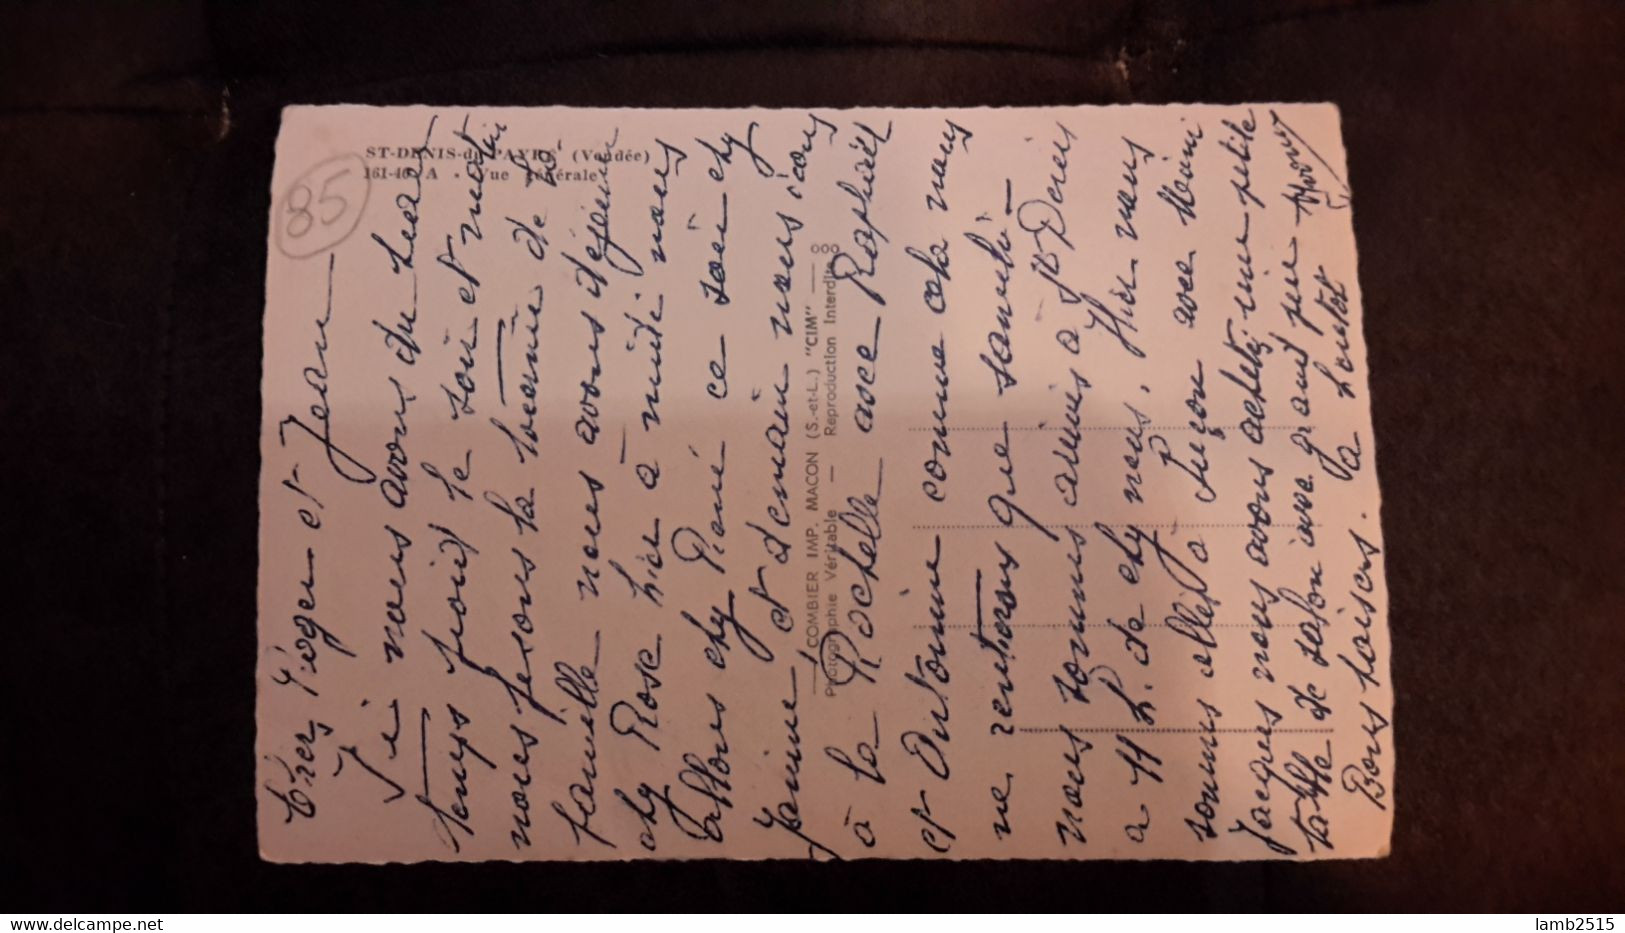 ST-DENIS-du-PAYRÉ (Vendée)
161-10 A • Vue générale
85
COMBIER IMP. MACON (S.-et-L.) "CIM"
Photographie Véritable — Reproduction Interdite
Chers Roger et Jean
Ici nous avons du beau
temps froid le soir et matin
nous ferons la tournée de la
famille nous avons déjeuner
chez Rose hier à midi nous
allons chez René ce soir chez
Janine et demain nous irons
à la Rochelle avec Raphaël
et Antonine comme cela nous
ne rentrerons que samedi —
nous sommes arrivés à St Denis
a 11 h. de chez nous. Hier nous
sommes allés à Luçon avec Mimi
Jacques nous avons acheter une petite
table de salon
Bons baisers.
lamb2515